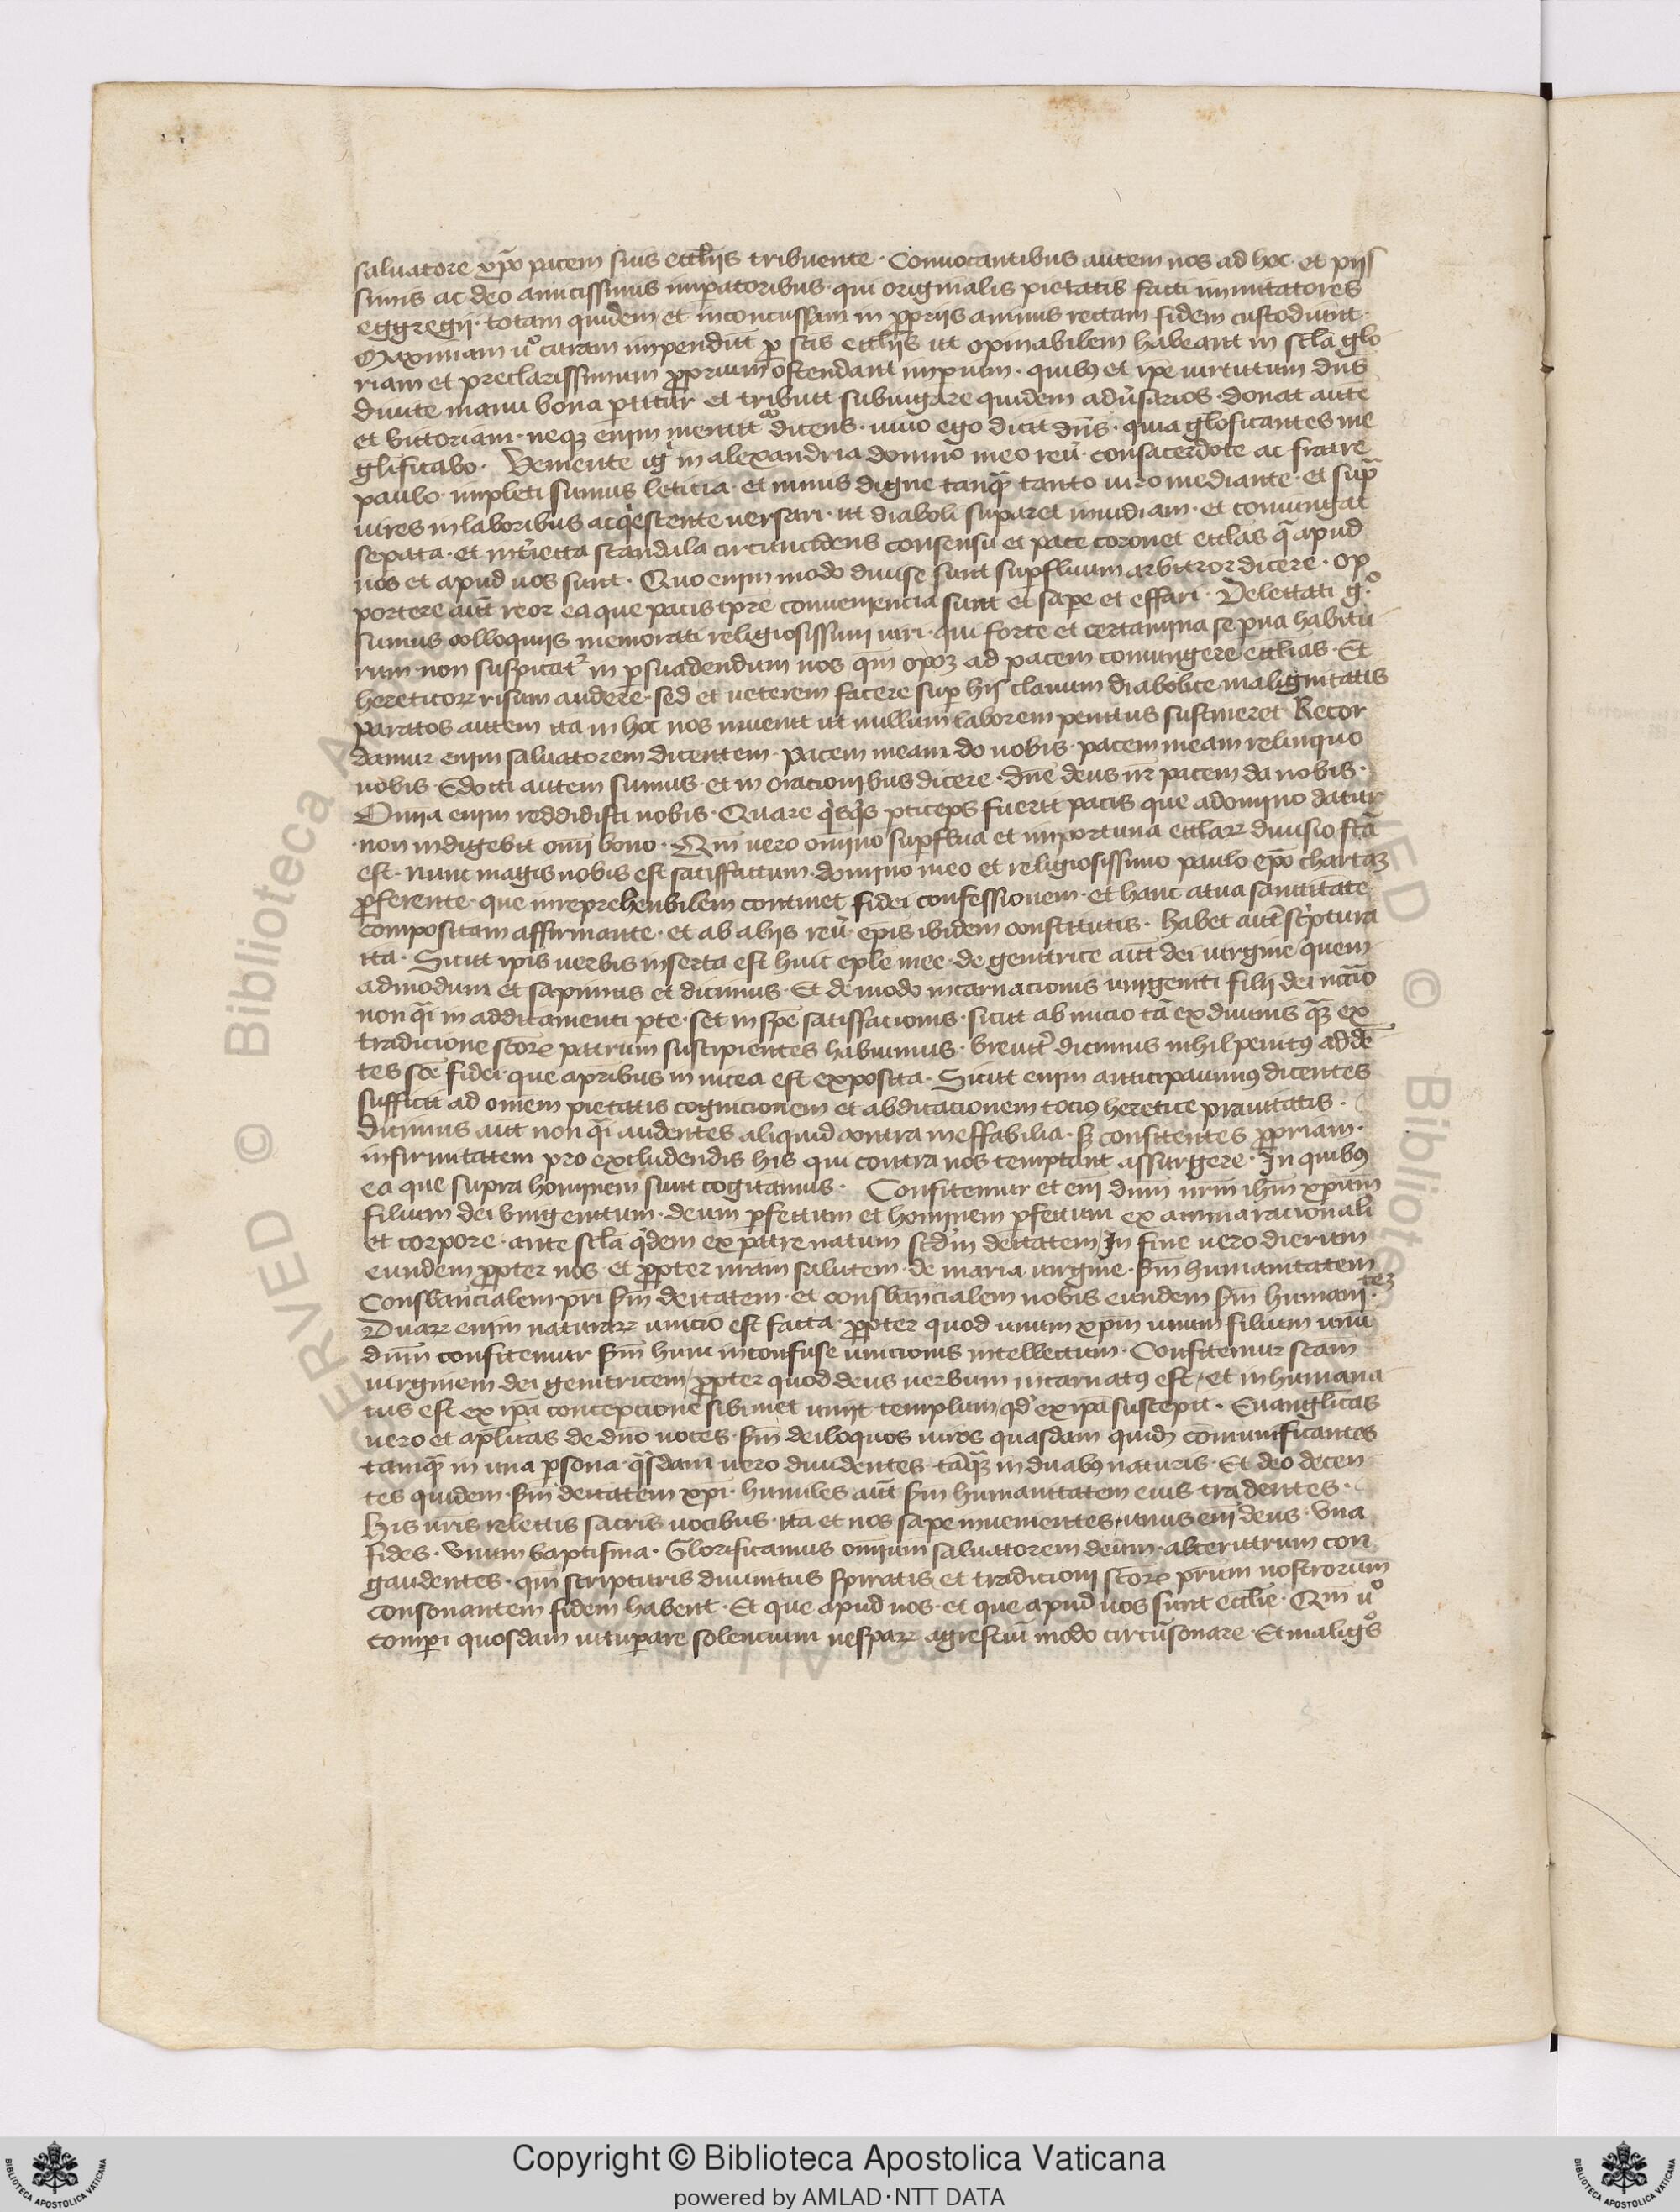 saluatore xp̄o pacem suis eccl̄iis tribuente · Conuocantibus autem nos ad hoc et piis
simis ac deo amicissimis imꝑatoribus · qui originalis pietatis facti immitatores
eggregii · totam quidem et inconcussam in ꝓpriis animis rectam fidem custodiunt ·
Maximam u͛o curam impendūt ꝓ sc̄is eccl̄iis ut opinabilem habeant in sc̄la glo
riam et preclarissimum ꝓprium ostendant imꝑium · quibꝰ et ip̄e uirtutum dn̄s
diuite manu bona ꝑtitur et tribuit subiugare quidem adu͛sarios · donat autē
et uictoriam · neqꝫ enim mentit᷑ dicens · uiuo ego dicit dn̄s · quia glo͛ificantes me
gl͛ificabo · Veniente ig͛ in alexandria domino meo reu͛ · consacerdote ac fratre
paulo · impleti sumus leticia · et nimis digne tanqꝫ tanto uiro mediante · et suꝑ
uires in laboribus acq͛escente uersari · ut diaboli suꝑaret inuidiam · et coniungat
seꝑata · et int͛iecta scandala circuncidens consensu et pace coronet eccl̄as q̄ apud
nos et apud uos sunt · Quo enim modo diuise sunt suꝑfluum arbitror dicere · Op
portere aūt reor ea que pacis tꝑre conueniencia sunt et sapere et effari · Delectati g͛o
sumus colloquiis memorati religiosissimi uiri · qui forte et certamina se ꝑua habitu
rum · non suspicat᷑ in ꝑsuadendum nos qm̄ opꝫ ad pacem coniungere eccl̄ias · Et
hereticoꝝ risum audere · sed et ueterem facere suꝑ his clauum diabolice malignitatis
Paratos autem ita in hoc nos inuenit ut nullum laborem penitus sustineret Recor
damur enim saluatorem dicentem · pacem meam do uobis · pacem meam relinquo
uobis · Edocti autem sumus · et in oracionibus dicere · dn̄e deus nr̄ pacem da nobis ·
Omnia enim reddidisti nobis · Quare q͛sq͛s ꝑticeps fuerit pacis que a domino datur
· non indigebit om̄i bono · Qm̄ uero om̄ino suꝑflua et importuna eccl̄aꝝ diuisio fc̄a
est · nunc magis nobis est satisfactum · domino meo et religiosissimo paulo ep̄o chartaꝫ
ꝓferente · que irreprehensibilem continet fidei confessionem · et hanc a tua sanctitate
compositam affirmante · et ab aliis reu͛ · ep̄is ibidem constitutis · habet aut͛ sc͛ptura
ita · Sicut ip̄is uerbis inserta est huic ep̄le mee · de genitrice aūt dei uirgine quem
admodum et sapimus et dicimus · Et de modo incarnacionis unigeniti filii dei nccīo
non q̄i in additamenti ꝑte · set in spe satisfacionis · sicut ab inicio tā ex diuinis qꝫ ex
tradicione sc̄oꝝ patrum suscipientes habuimus · breuit͛ dicimus nihil penitꝰ adden̄
tes sc̄e fidei · que a pr̄ibus in nicea est exposita · Sicut enim anticipauimꝰ dicentes
sufficit ad om̄em pietatis cognicionem et abdicacionem tociꝰ heretice prauitatis ·
dicimus aut non q̄i audentes aliquid contra ineffabilia · sꝫ confitentes ꝓpriam ·
infirmitatem pro excludendis his qui contra nos temptant assurgere · In quibꝰ
ea que supra hominem sunt cogitamus · Confitemur et em̄ dūm nr̄m ih̄m xp̄um
filium dei unigenitum · deum ꝑfectum et hominem ꝑfectum ex anima racionali
et corpore · ante sc̄la q͛dem ex patre natum sc͛d͛m deitatem In fine uero dierum
eundem ꝓpter nos · et ꝓpter nr̄am salutem · de maria uirgine · sm̄ humanitatem
Consubancialem pr̄i sm̄ deitatem · et consubancialem nobis eundem sm̄ humani · teꝫ
Duaꝝ enim naturaꝝ unicio est facta · ꝓpter quod unum xp̄m unum filium unū
dn̄m confitemur sm̄ hunc inconfuse unicionis intellectum · Confitemur sc̄am
uirginem dei genitricem / ꝓpter quod deus uerbum incarnatꝰ est / et inhumana
tus est ex ip̄a concepcione sibimet uniit templum qd͛ ex ip̄a suscepit · Euangl̄icas
uero et apl̄icas de dn̄o uoces · sm̄ deiloquos uiros quasdam quidē comunificantes
tamqꝫ in una ꝑsona · q͛sdam uero diuidentes · tāqꝫ in duabꝰ naturis · Et deo decen
tes quidem · sm̄ deitatem xp̄i · humiles aūt sm̄ humanitatem eius tradentes ·
His ur̄is relectis sacris uocibus · ita et nos sapere inuenientes / unus em̄ deus · Vna
fides · Vnum baptisma · Glorificamus om̄ium saluatorem deum · alterutrum con
gaudentes · qm̄ scripturis diuinitus spiratis et tradicioni sc̄oꝝ pr̄um nostrorum
consonantem fidem habent · Et que apud nos · et que apud uos sunt eccl̄ie · Qm̄ u͛o
comꝑi quosdam uituꝑare solencium uesꝑaꝝ agrestiū modo circūsonare · Et malig͛os
Copyright © Biblioteca Apostolica Vaticana
powered by AMLAD·NTT DATA